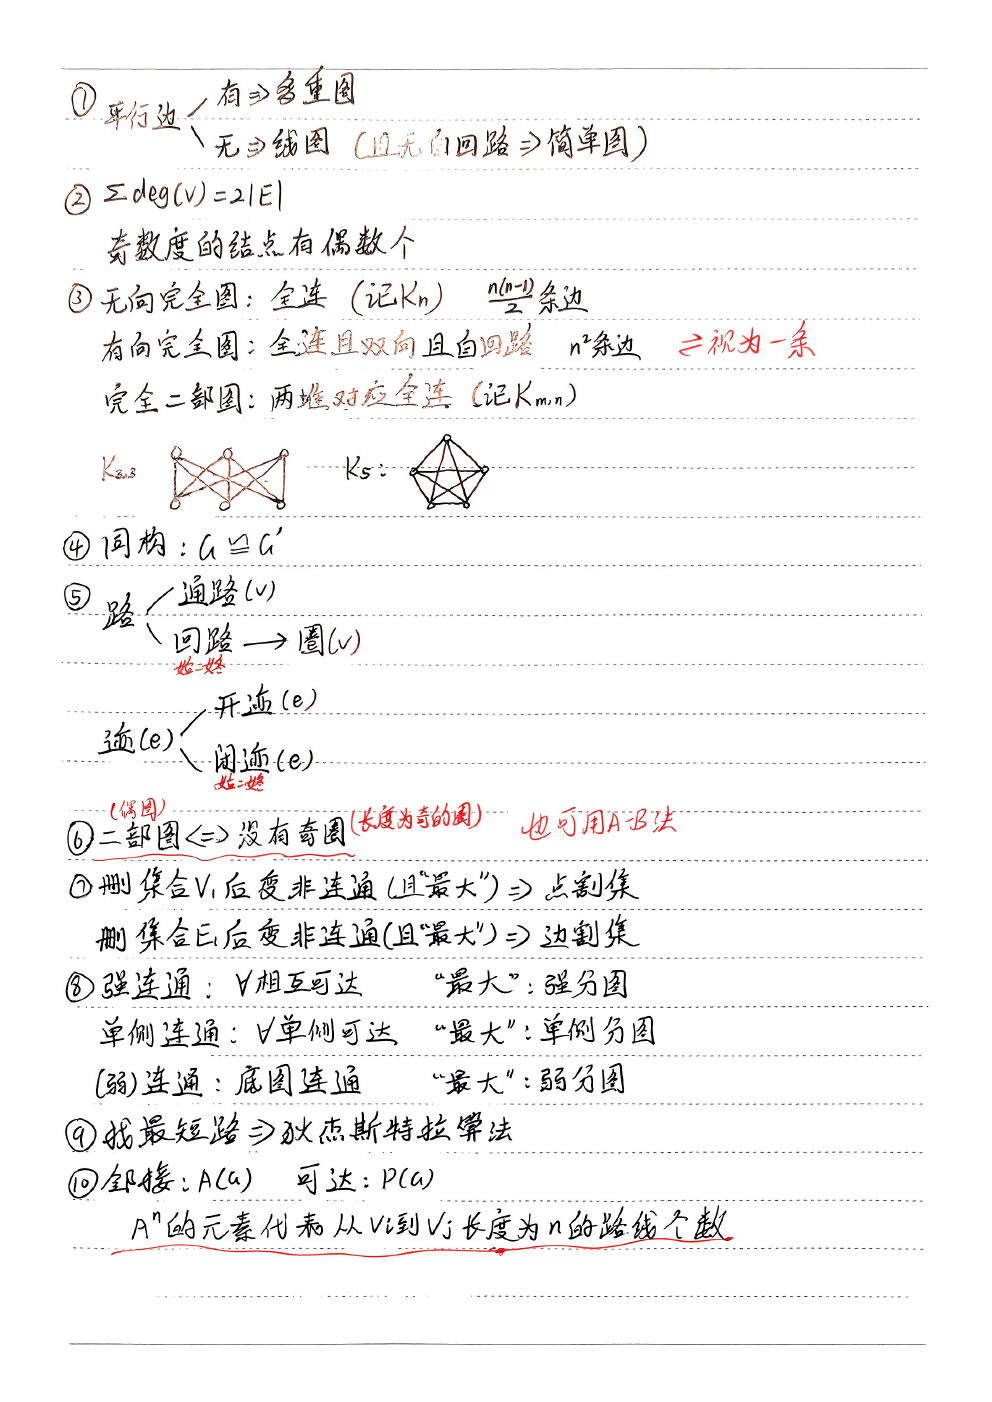 ① 平行边 有⇒多重图
无⇒线图 (且无自回路⇒简单图)
② Σdeg(v)=2|E|
奇数度的结点有偶数个
③ 无向完全图：全连 (记Kn) n(n-1)/2 条边
有向完全图：全连且双向且自回路 n²条边 ⇌视为一条
完全二部图：两堆对应全连 (记Km,n)
K3,3 K5：
④ 同构：G≌G'
⑤ 路 通路(v)
回路→圈(v)
始=终
迹(e) 开迹(e)
闭迹(e)
始=终
(偶图)
⑥ 二部图<=>没有奇圈 (长度为奇的圈) 也可用A-B法
⑦ 删集合V₁后变非连通(且"最大")⇒点割集
删集合E₁后变非连通(且"最大")⇒边割集
⑧ 强连通：∀相互可达 "最大"：强分图
单侧连通：∀单侧可达 "最大"：单侧分图
(弱)连通：底图连通 "最大"：弱分图
⑨ 找最短路⇒狄杰斯特拉算法
⑩ 邻接：A(G) 可达：P(G)
Aⁿ的元素代表从Vi到Vj长度为n的路线个数